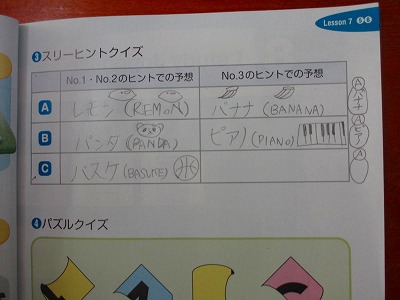 Lesson 7 ⑤⑥
❸スリーヒントクイズ
No.1・No.2のヒントでの予想 No.3のヒントでの予想
A レモン (REMON) バナナ (BANANA) A バナナ
B パンダ (PANDA) ピアノ (PIANO) A ピアノ
C バスケ (BASUKE) A
❹パズルクイズ